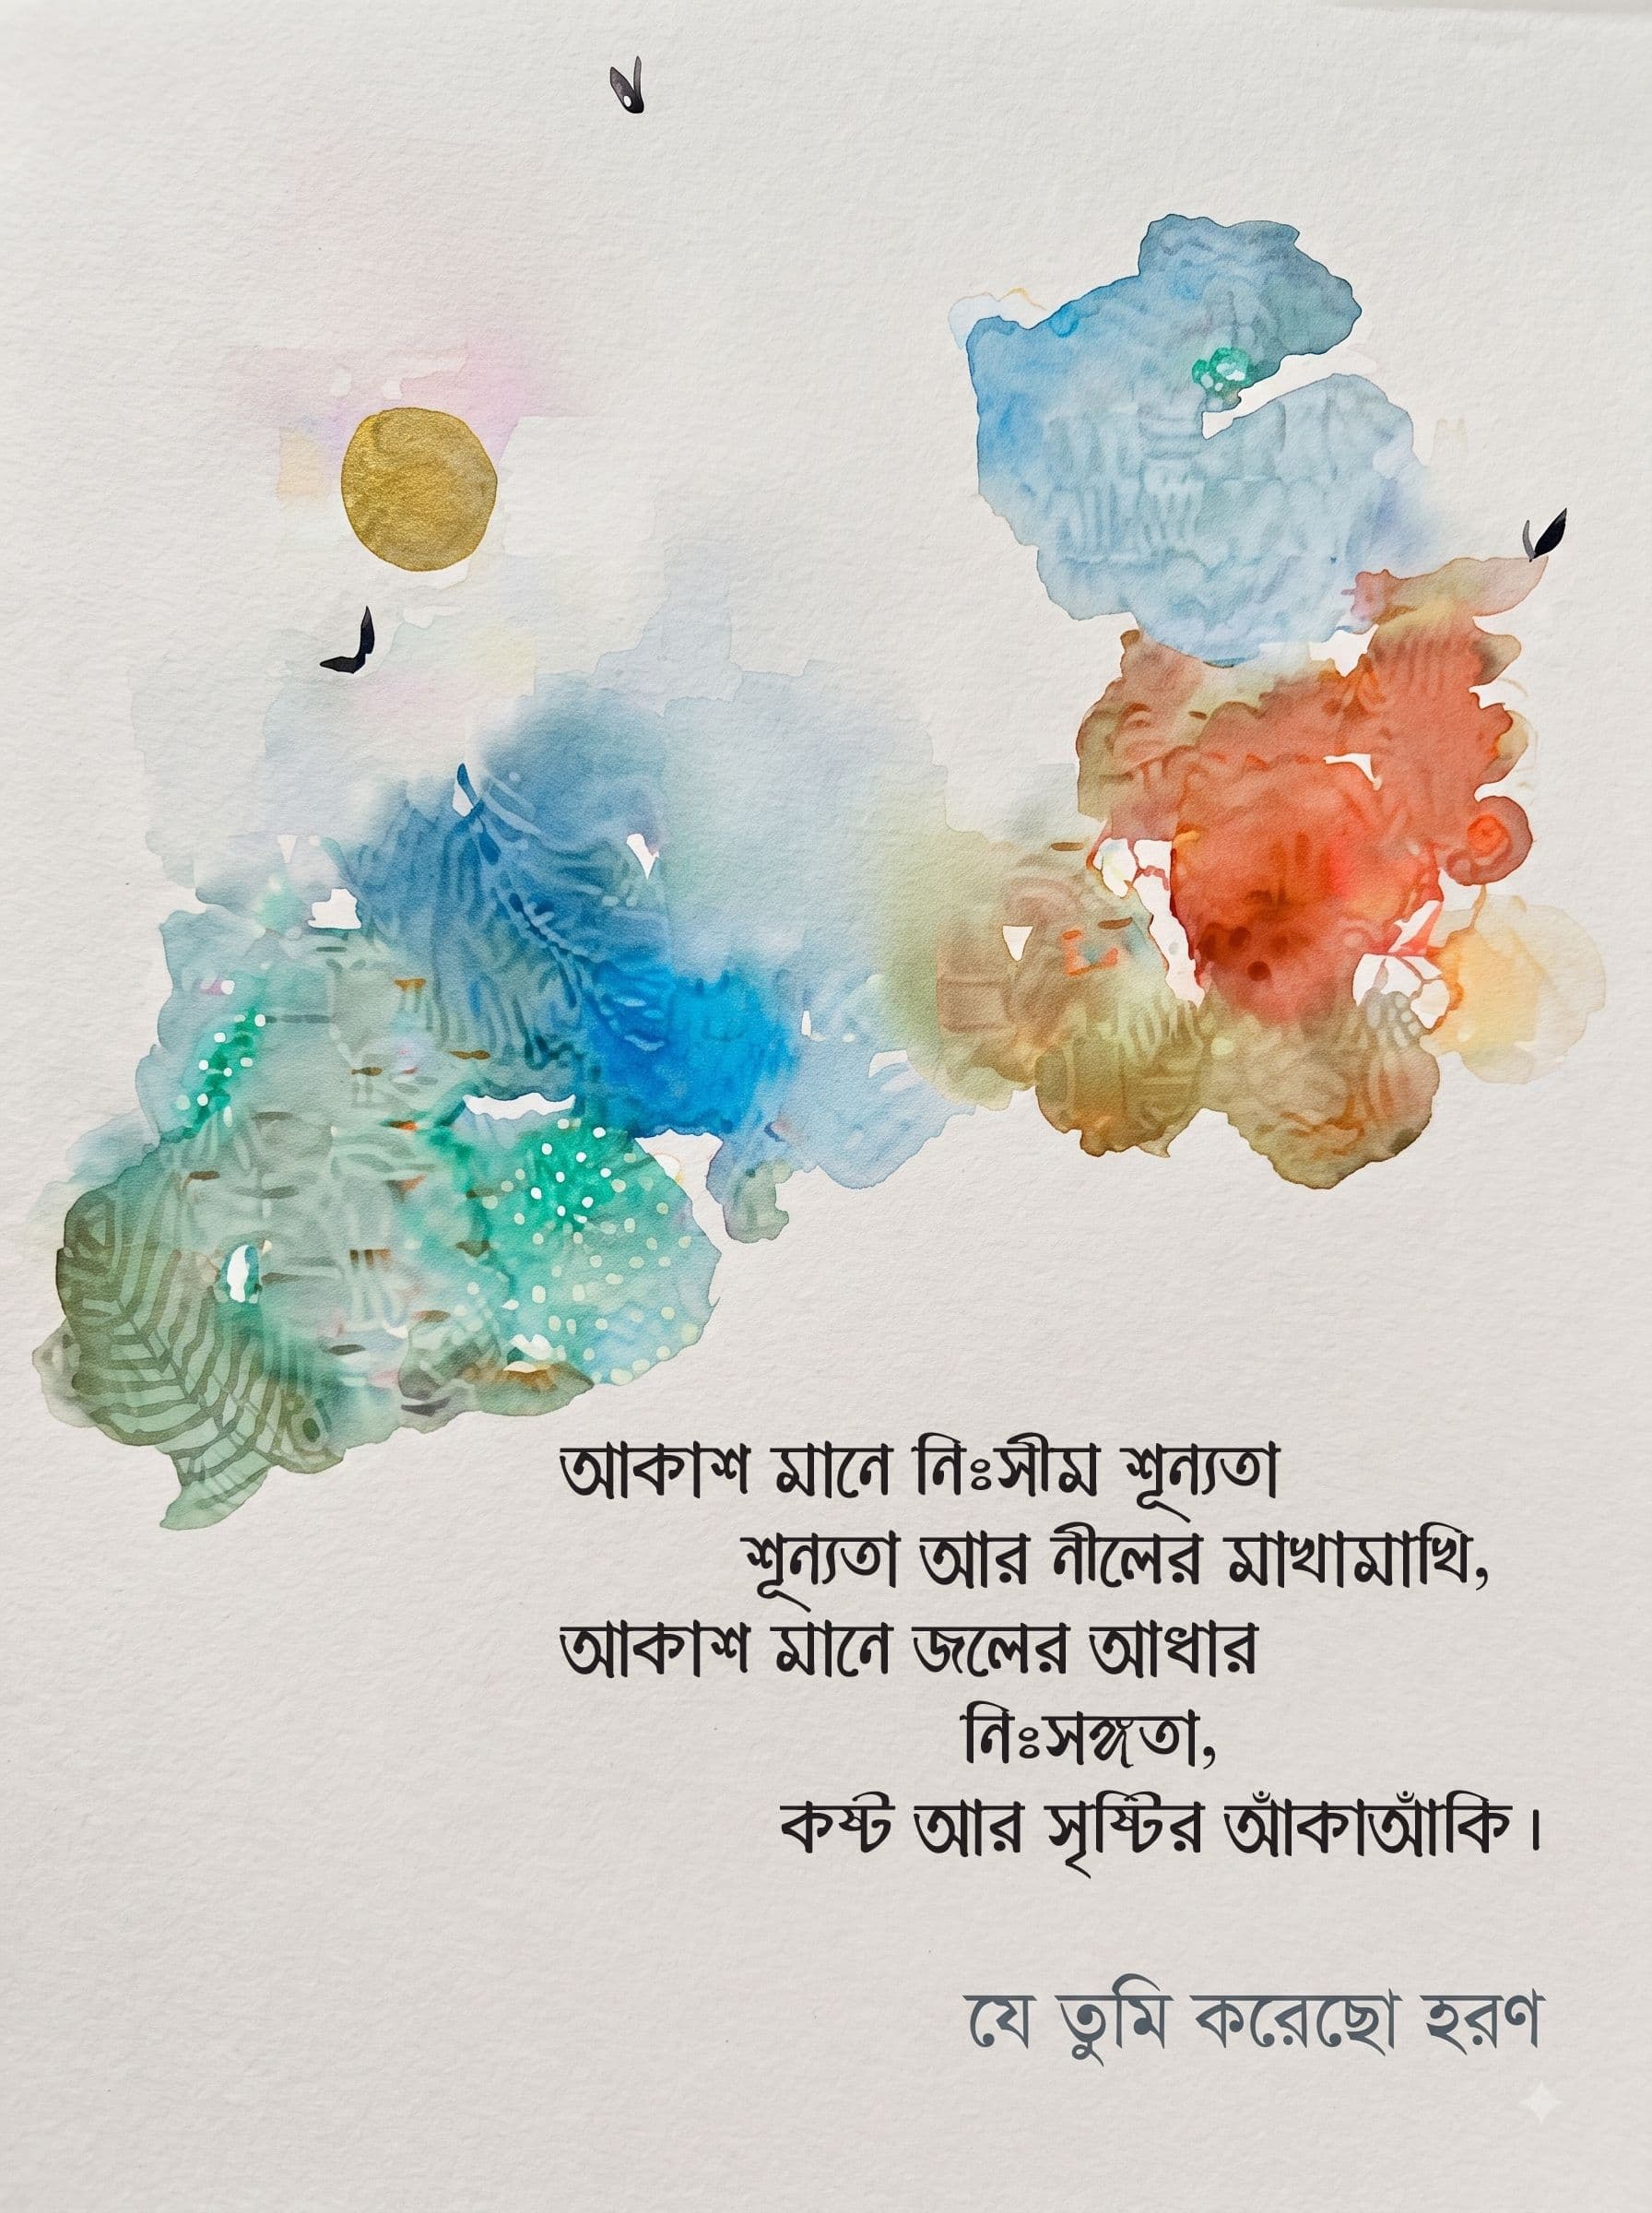 আকাশ মানে নিঃসীম শূন্যতা
শূন্যতা আর নীলের মাখামাখি,
আকাশ মানে জলের আধার
নিঃসঙ্গতা,
কষ্ট আর সৃষ্টির আঁকাআঁকি।
যে তুমি করেছো হরণ